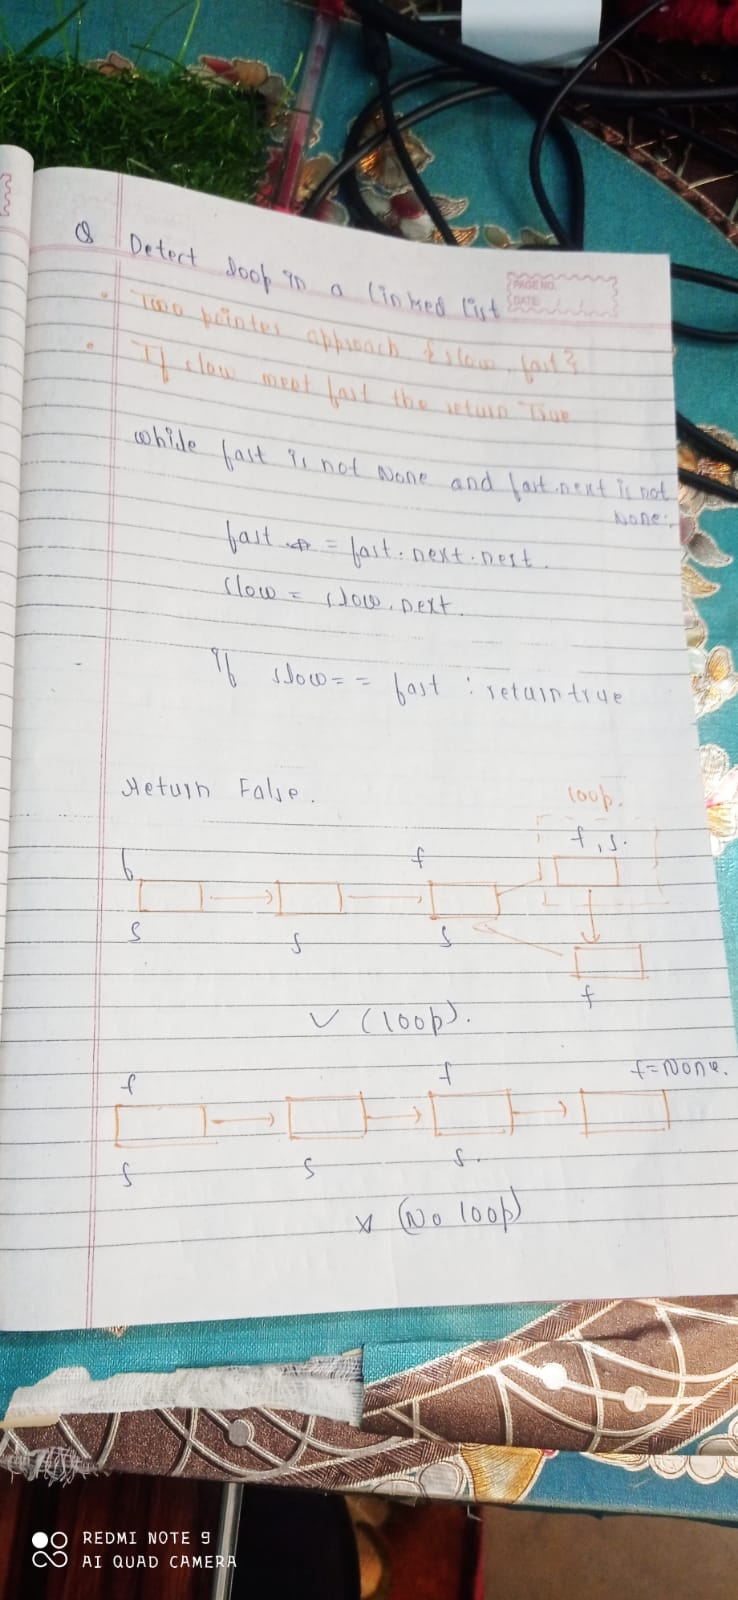 Q Detect loop in a linked list
PAGE NO.
DATE: / /
• Two pointer approach {slow, fast}
• If slow meet fast the return True
while fast is not None and fast.next is not
None:
fast = fast.next.next.
slow = slow.next.
If slow == fast : return true
Return False.
loop.
f f f,s.
s s s
f
✓ (loop).
f f f=None.
s s s.
x (No loop)
REDMI NOTE 9
AI QUAD CAMERA